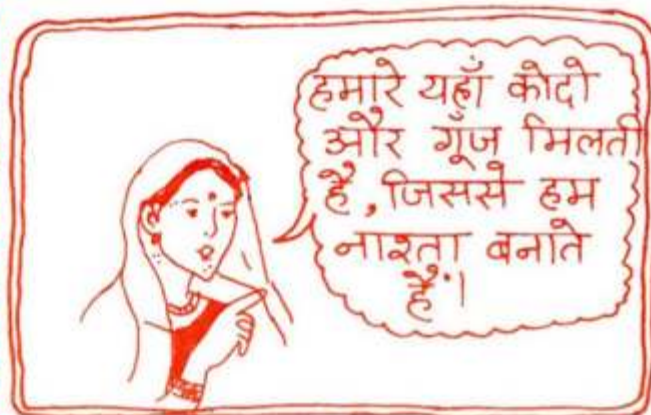 हमारे यहाँ कोदो
और गूँज मिलती
है, जिससे हम
नाश्ता बनाते
हैं।